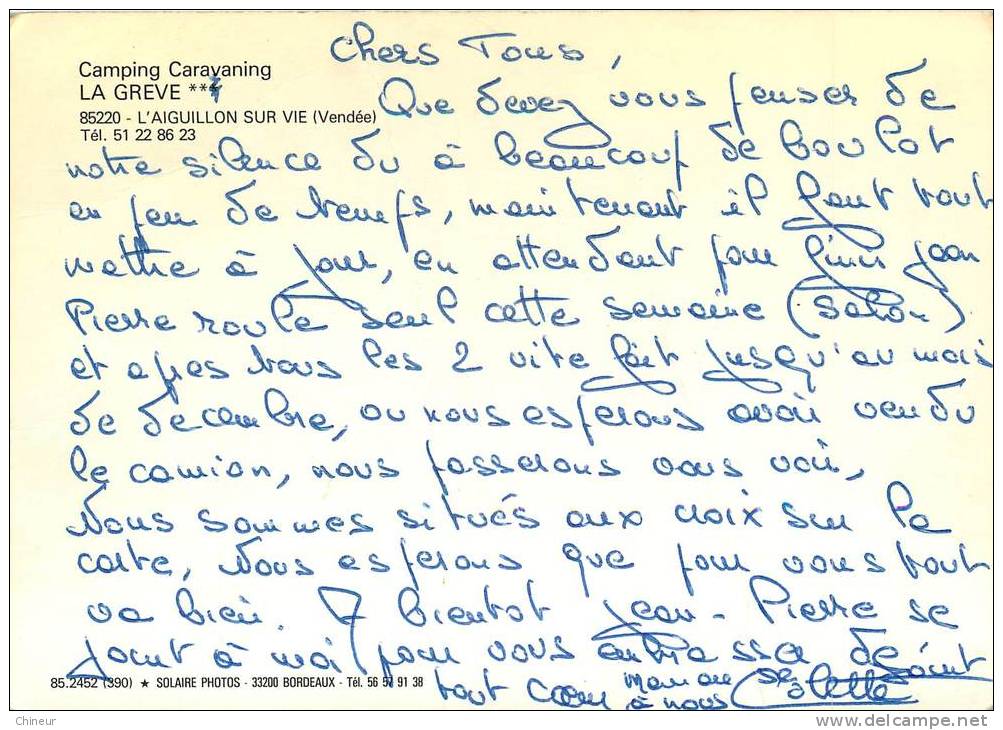 Chers Tous,
Camping Caravaning
LA GREVE ***
Que devez vous penser de
85220 - L'AIGUILLON SUR VIE (Vendée)
Tél. 51 22 86 23
notre silence du à beaucoup de boulot
en peu de temps, maintenant il faut tout
mettre à jour, en attendant pour finir Jean
Pierre roule seul cette semaine (salon)
et apres Nous les 2 vite fait jusqu'au mois
de decembre, ou nous esperons avoir vendu
le camion, nous passerons vous voir,
Nous sommes situés aux croix sur la
carte, Nous esperons que pour vous tout
va bien. A bientot Jean-Pierre se
joint à moi pour vous embrasser de
tout coeur maman se joint
à nous Colette
85.2452 (390) ★ SOLAIRE PHOTOS - 33200 BORDEAUX - Tél. 56 97 91 38
Chineur
delcampe.net